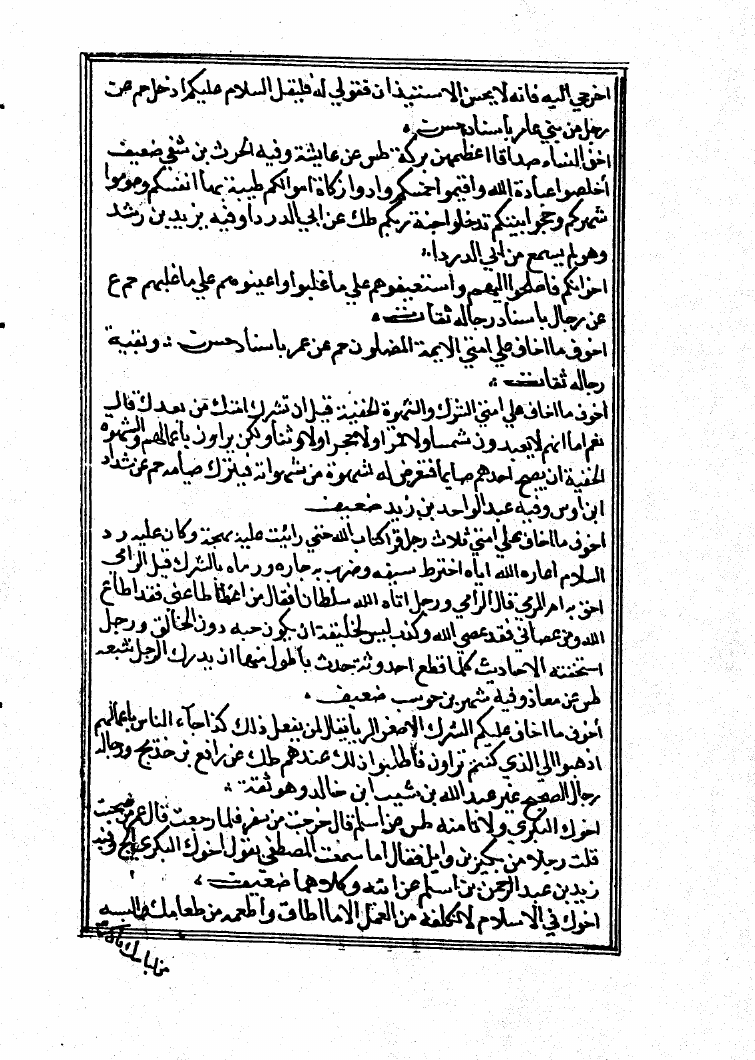 اخرجي اليه فانه لا يحسن الاستيذان فقولي له فليقل السلام عليكم أدخل حم عن
رجل من بني عامر باسناد حسن
اخف النساء صداقا اعظمهن بركة طس عن عايشة وفيه الحرث بن شبل ضعيف
أخلصوا عبادة الله واقيموا خمسكم وادوا زكاة اموالكم طيبة بها انفسكم وصوموا
شهركم وحجوا بيتكم تدخلوا جنة ربكم طك عن ابي الدردا وفيه يزيد بن مرثد
وهو لم يسمع من ابي الدردا
اخوانكم فاصلحوا اليهم واستعينوهم علي ما غلبوا واعينوهم علي ما غلبهم حم ع
عن رجال باسناد رجاله ثقات
اخوف ما اخاف علي امتي الايمة المضلون حم عن عمر باسناد حسن وبقية
رجاله ثقات
اخوف ما اخاف علي امتي الشرك والشهوة الخفية قيل ان تشرك امتك من بعدك قال
نعم اما انهم لا يعبدون شمسا ولا قمرا ولا حجرا ولا وثنا ولكن يراون باعمالهم والشهوة
الخفية ان يصبح احدهم صايما فتعرض له شهوة من شهواته فيترك صيامه حم عن شداد
ابن اوس وفيه عبد الواحد بن زيد ضعيف
اخوف ما اخاف علي امتي ثلاث رجل قرا كتاب الله حتي رايت عليه بهجته وكان عليه رد
السلام اعاره الله اياه اخترط سيفه وضرب به جاره ورماه بالشرك قيل الرامي
احق به ام المرمي قال الرامي ورجل اتاه الله سلطانا فقال من اطاعني فقد اطاع
الله ومن عصاني فقد عصي الله وكذب ليس لخليفة ان يكون جنة دون الخالق ورجل
استخفته الاحاديث كلما قطع احدوثة حدث باطول منها ان يدرك الدجل يتبعه
طس عن معاذ وفيه شهر بن حوشب ضعيف
أخوف ما اخاف عليكم الشرك الاصغر الريا يقال لمن يفعل ذلك اذا جاء الناس باعمالهم
اذهبوا الي الذي كنتم تراون فاطلبوا ذلك عندهم طك عن رافع بن خديج ورجاله
رجال الصحيح غير عبد الله بن شبيب ابن خالد وهو ثقة
اخوك البكري ولا تامنه طس عن اسلم قال خرجت من سفر فلما رجعت قال عمر من صحبت
قلت رجلا من بكر بن وايل فقال اما سمعت المصطفي يقول اخوك البكري الخ وفيه
زيد بن عبد الرحمن بن اسلم عن ابيه وكلاهما ضعيف
اخوك في الاسلام لا تكلفه من العمل الا ما اطاق وأطعمه من طعامك والبسه
من لباسك